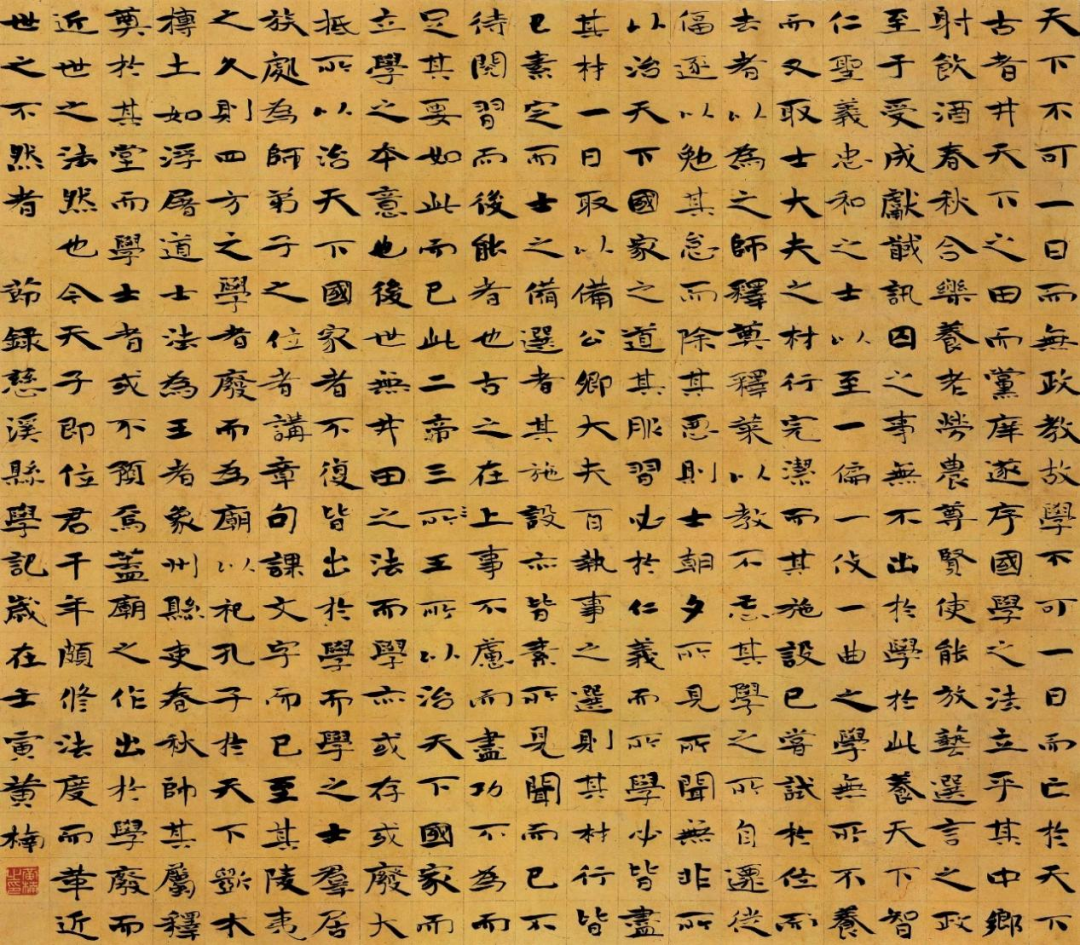 天下不可一日而無政教故學不可一日而亡於天下
古者井天下之田而黨庠遂序國學之法立乎其中鄉
射飲酒春秋合樂養老勞農尊賢使能放藝選言之政
至于受成獻馘訊囚之事無不出於學於此養天下智
仁聖義忠和之士以至一偏一伎一曲之學無所不養
而又取士大夫之材行完潔而其施設已嘗試於位而
去者以為之師釋奠釋菜以教不忘其學之所自遷徙
偪逐以勉其怠而除其惡則士朝夕所見所聞無非所
以治天下國家之道其服習必於仁義而所學必皆盡
其材一日取以備公卿大夫百執事之選則其材行皆
已素定而士之備選者其施設亦皆素所見聞而已不
待閱習而後能者也古之在上事不慮而盡功不為而
足其要如此而已此二帝三所王所以治天下國家而
立學之本意也後世無井田之法而學亦或存或廢大
抵所以治天下國家者不復皆出於學而學之士羣居
族處為師弟子之位者講章句課文字而已至其陵夷
之久則四方之學者廢而為廟以祀孔子於天下斲木
摶土如浮屠道士法為王者象州縣吏春秋帥其屬釋
奠於其堂而學士者或不預焉蓋廟之作出於學廢而
近世之法然也今天子即位若千年頗修法度而革近
世之不然者 節錄慈溪縣學記歲在壬寅黃楠